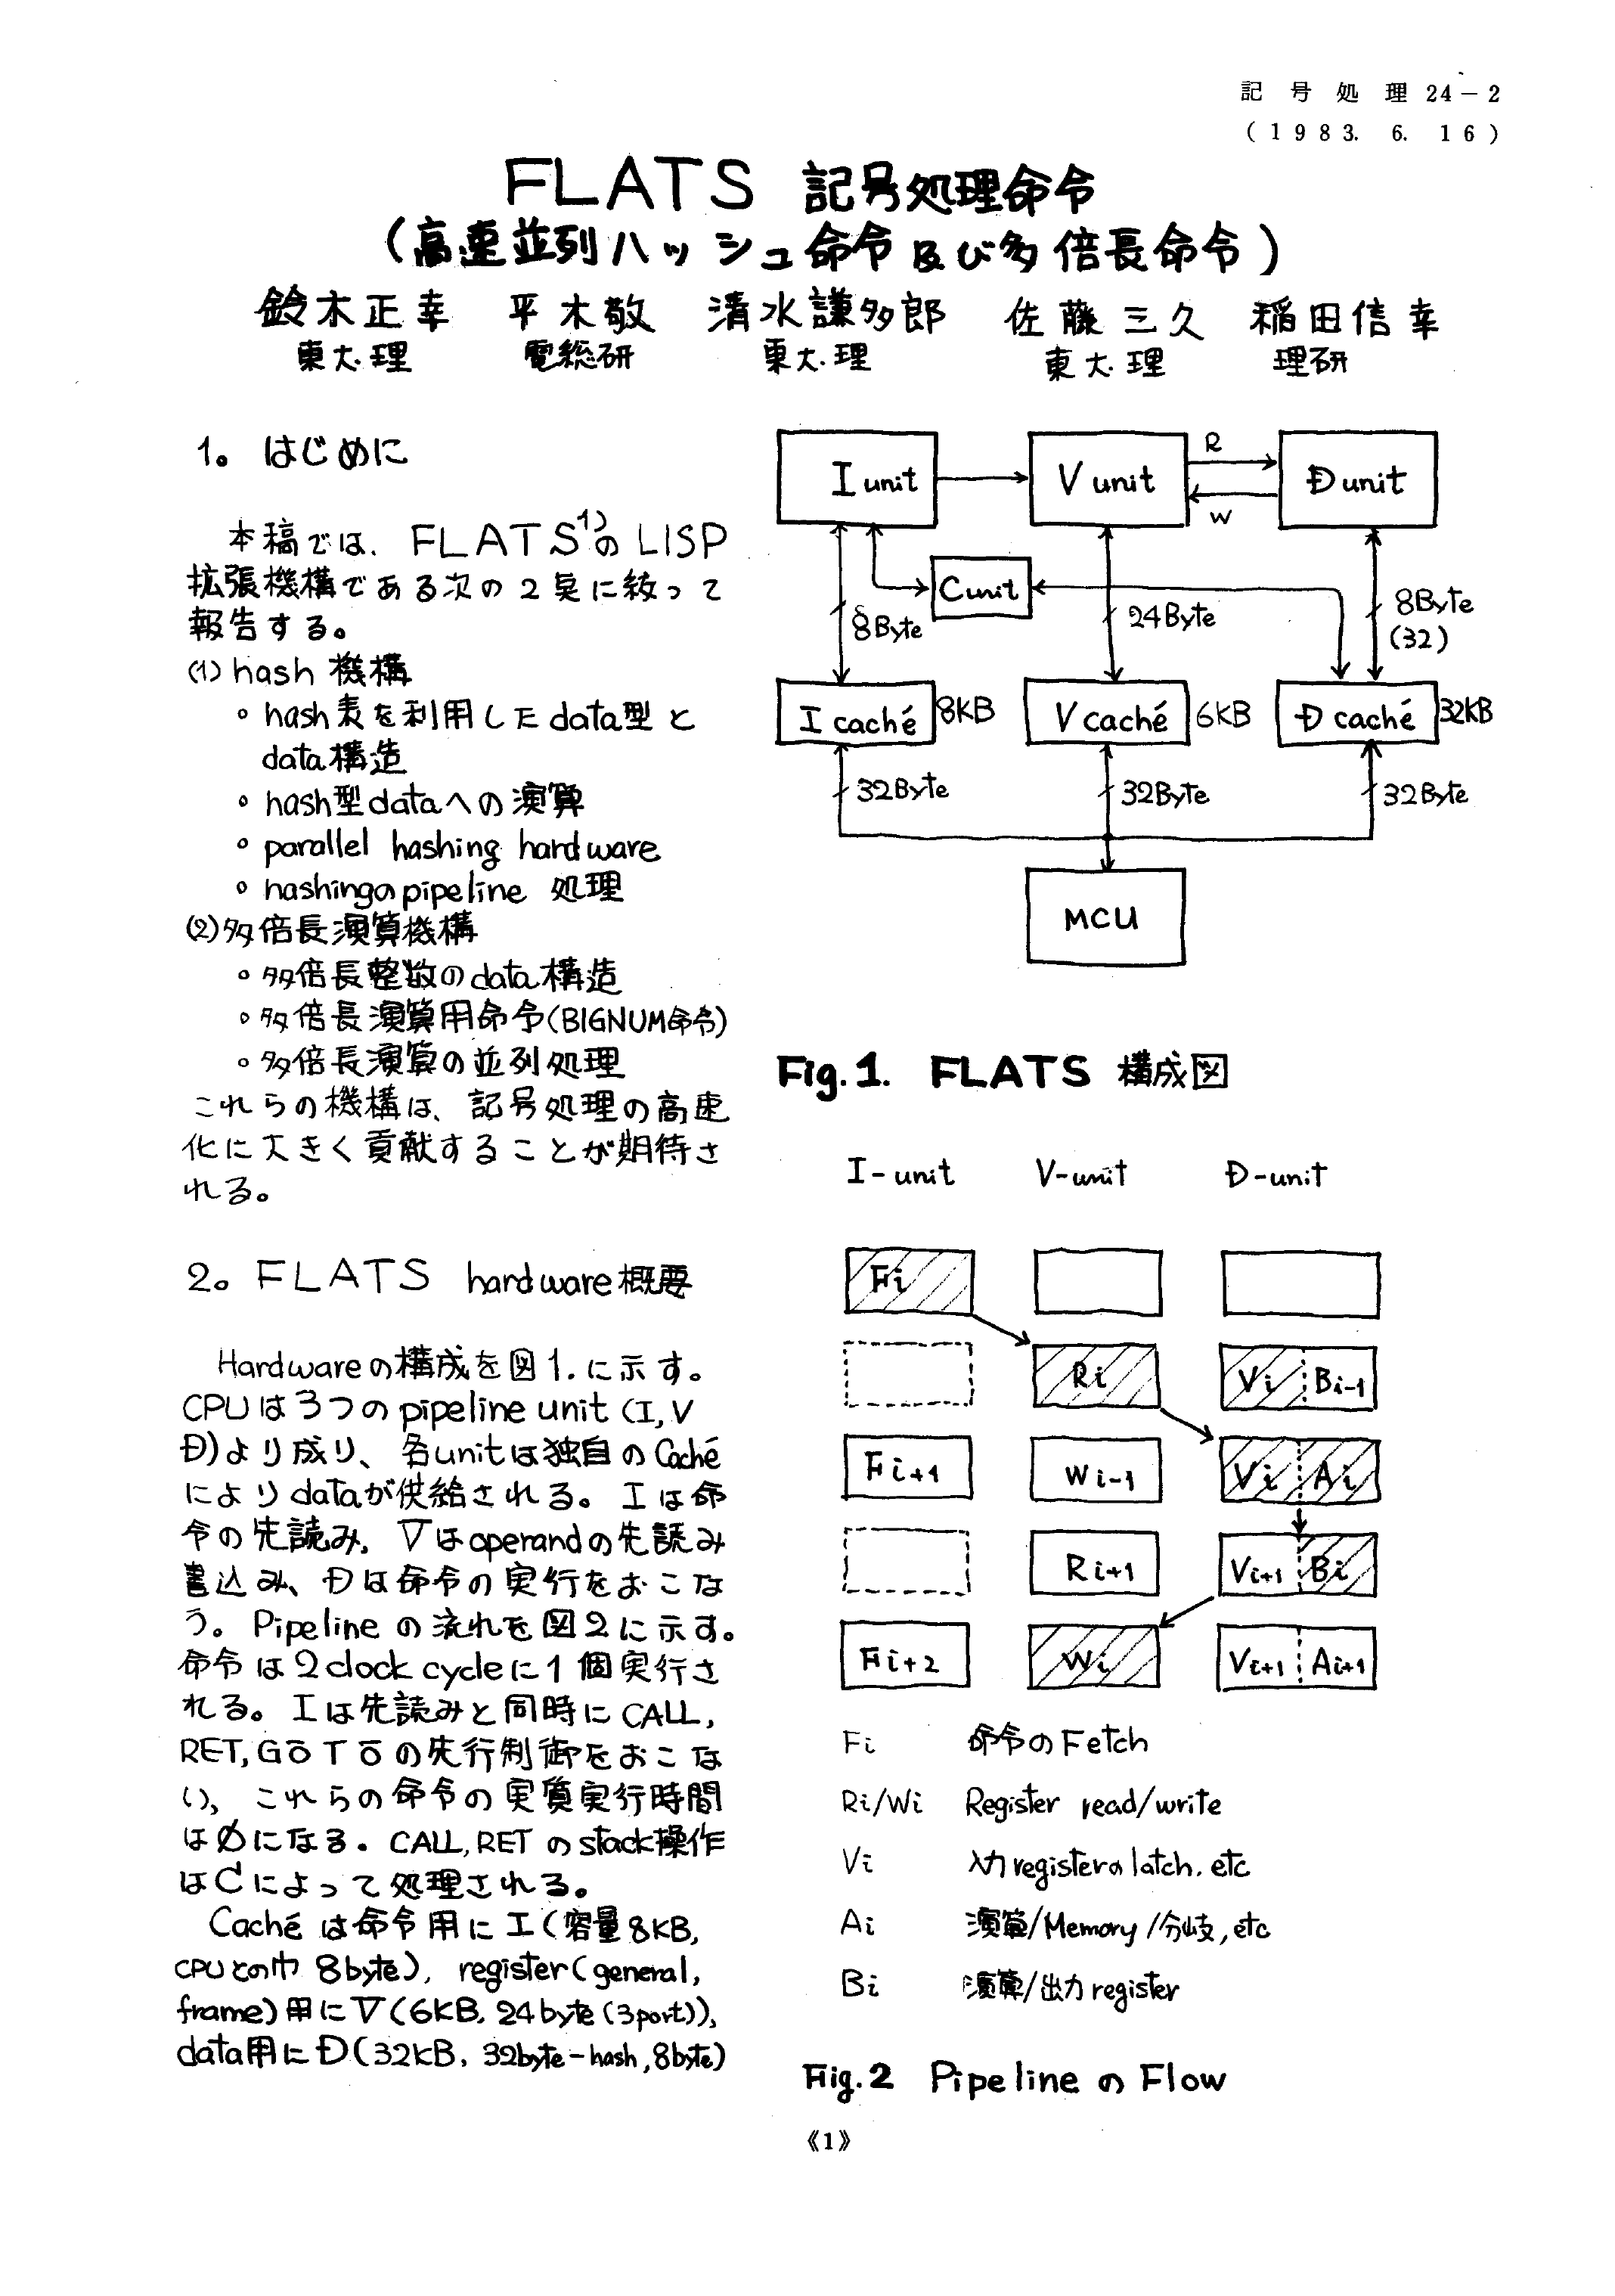 記号処理 24－2
(1983. 6. 16)
FLATS 記号処理命令
(高速並列ハッシュ命令及び多倍長命令)
鈴木正幸 平木敬 清水謙多郎 佐藤三久 稲田信幸
東大.理 電総研 東大.理 東大.理 理研
1。はじめに
本稿では、FLATS1)のLISP
拡張機構である次の2点に絞って
報告する。
(1) hash 機構
◦ hash表を利用したdata型と
data構造
◦ hash型dataへの演算
◦ parallel hashing hardware
◦ hashingのpipeline 処理
(2)多倍長演算機構
◦ 多倍長整数のdata構造
◦ 多倍長演算用命令(BIGNUM命令)
◦ 多倍長演算の並列処理
これらの機構は、記号処理の高速
化に大きく貢献することが期待さ
れる。
2。FLATS hardware概要
Hardwareの構成を図1.に示す。
CPUは3つのpipeline unit (I,V
Đ)より成り、各unitは独自のCaché
によりdataが供給される。Iは命
令の先読み, Vはoperandの先読み
書込み、Đは命令の実行をおこな
う。Pipelineの流れを図2に示す。
命令は2clock cycleに1個実行さ
れる。Iは先読みと同時にCALL,
RET,GōTōの先行制御をおこな
い、これらの命令の実質実行時間
はØになる。CALL,RETのstack操作
はCによって処理される。
Cachéは命令用にI(容量8KB,
CPUとの巾 8byte), register(general,
frame)用にV(6KB, 24byte(3port)),
data用にĐ(32KB, 32byte-hash,8byte)
I unit
V unit
Đ unit
R
W
C unit
8Byte
24Byte
8Byte
(32)
I caché 8KB
V caché 6KB
Đ caché 32KB
32Byte
32Byte
32Byte
MCU
Fig.1. FLATS 構成図
I-unit V-unit Đ-unit
Fi
Ri Vi Bi-1
Fi+1 Wi-1 Vi Ai
Ri+1 Vi+1 Bi
Fi+2 Wi Vi+1 Ai+1
Fi 命令のFetch
Ri/Wi Register read/write
Vi 入力registerのlatch. etc
Ai 演算/Memory/分岐,etc
Bi 演算/出力register
Fig.2 PipelineのFlow
《1》